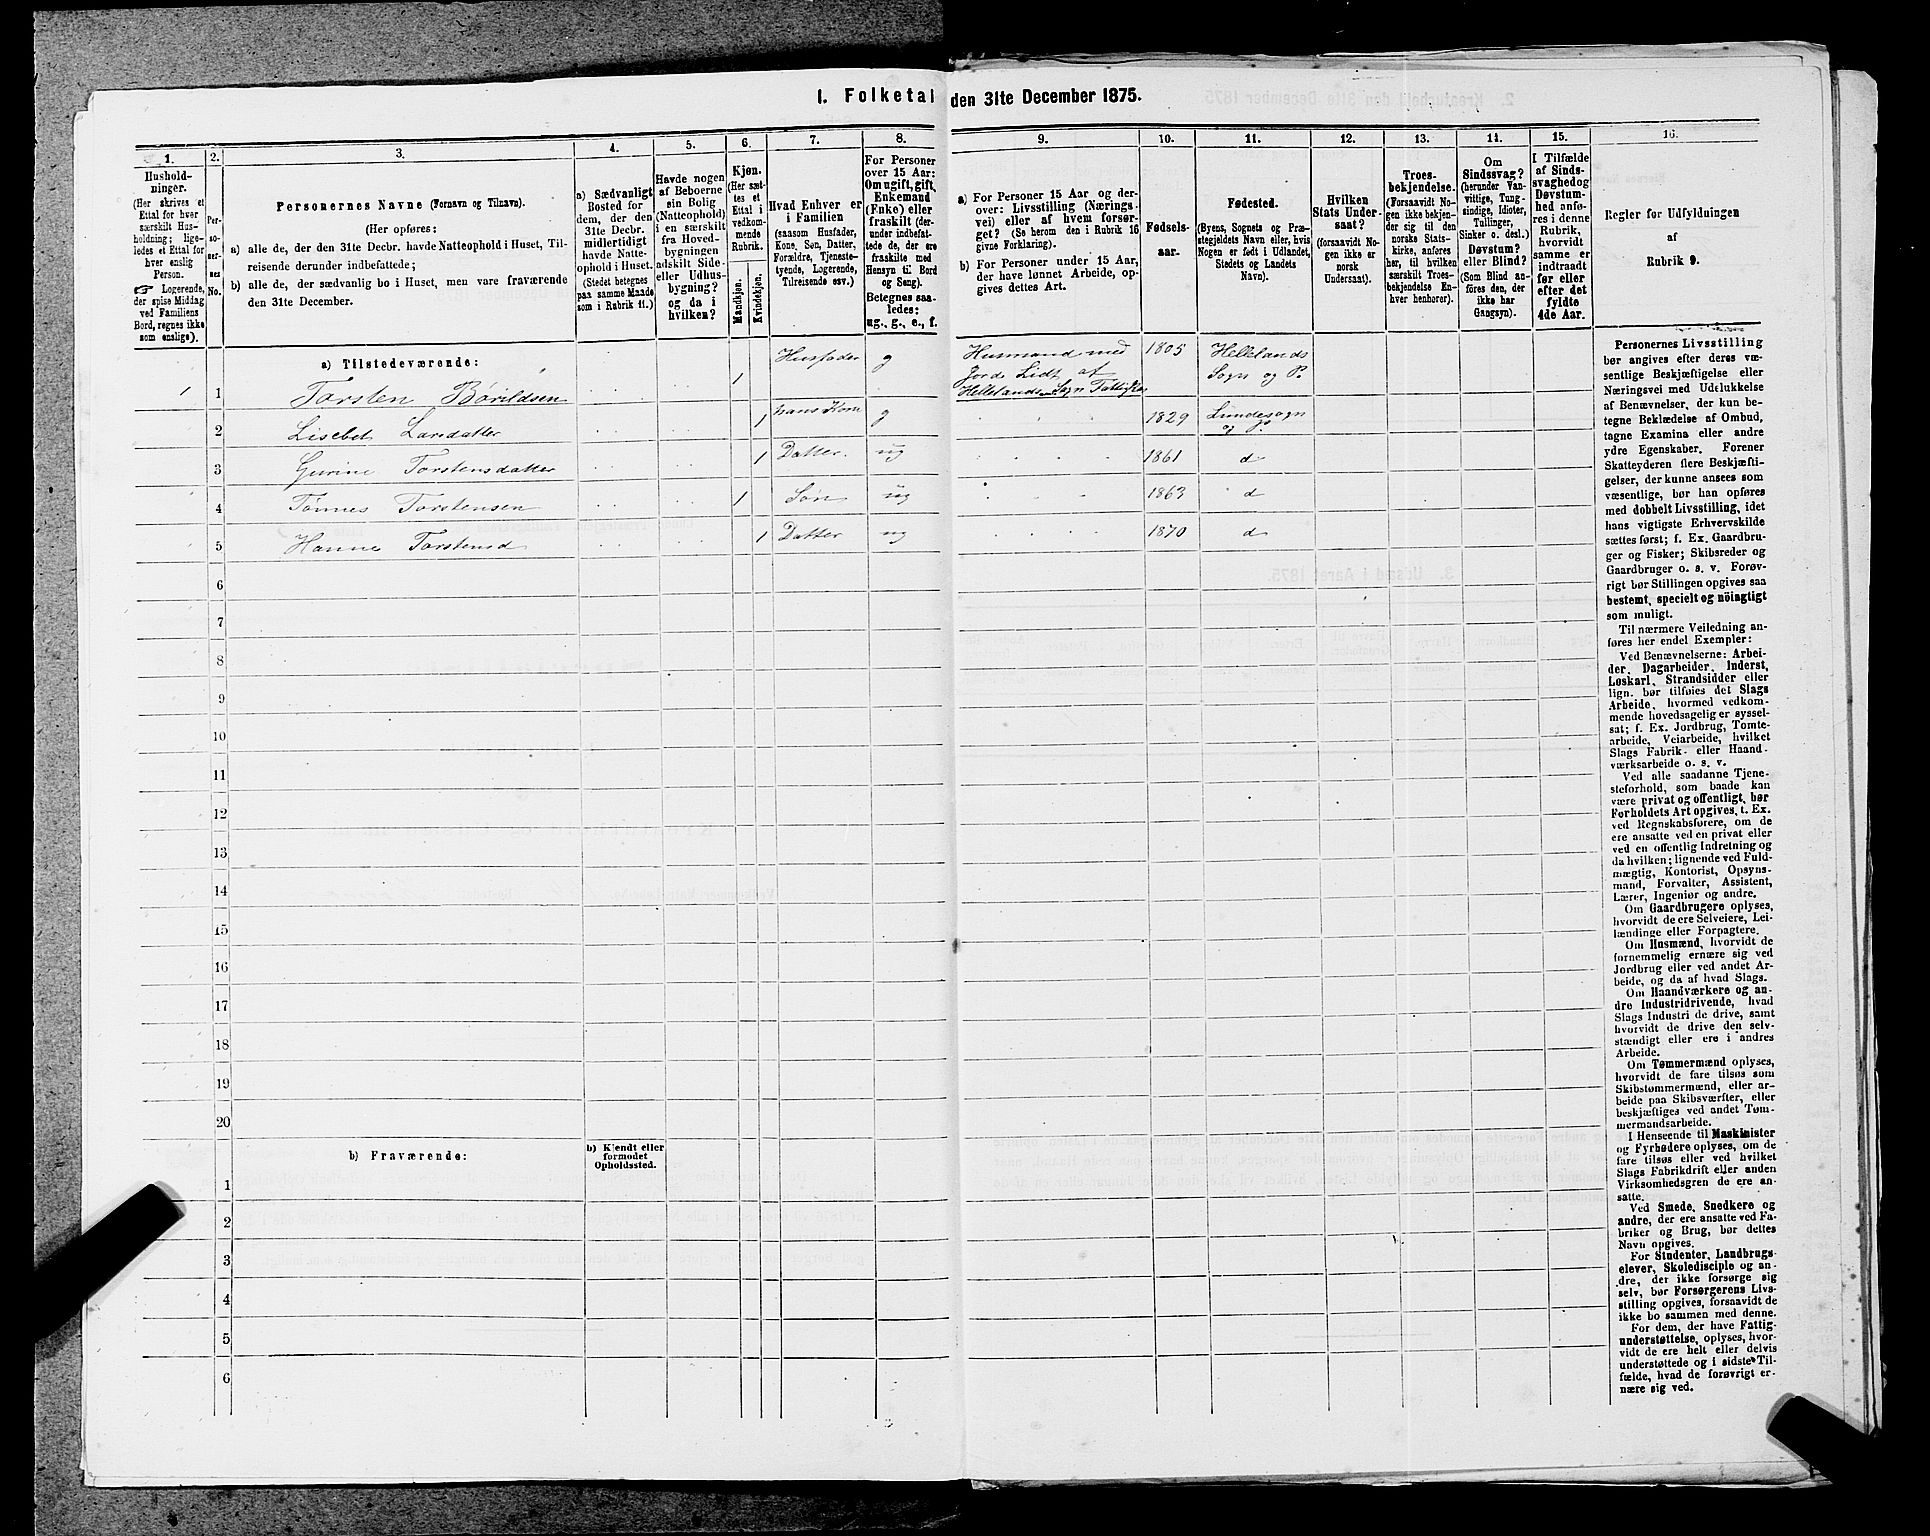 1. Folketal den 31te December 1875.
1.
2.
3.
4.
5.
6.
7.
8.
9.
10.
11.
12.
13.
14.
15.
16.
Hushold-
ninger.
(Her skrives et
Ettal for hver
særskilt Hus-
holdning; lige-
ledes et Ettal for
hver enslig
Person.
☞ Logerende,
der spise Middag
ved Familiens
Bord, regnes ikke
som enslige).
Per-
so-
ner-
nes
No.
Personernes Navne (Fornavn og Tilnavn).
(Her opføres:
a) alle de, der den 31te Decbr. havde Natteophold i Huset, Til-
reisende derunder indbefattede;
b) alle de, der sædvanlig bo i Huset, men vare fraværende
den 31te December.
a) Sædvanligt
Bosted for
dem, der den
31te Decbr.
midlertidigt
havde Natte-
ophold i Huset.
(Stedet betegnes
paa samme Maade
som i Rubrik 11.)
Havde nogen
af Beboerne
sin Bolig
(Natteophold)
i en særskilt
fra Hoved-
bygningen
adskilt Side-
eller Udhus-
bygning?
og da i
hvilken?
Kjøn.
(Her sæt-
tes et
Ettal i
vedkom-
mende
Rubrik.
Mandkjøn.
Kvindekjøn.
Hvad Enhver er
i Familien
(saasom Husfader,
Kone, Søn, Datter,
Forældre, Tjeneste-
tyende, Logerende,
Tilreisende osv.)
For Personer
over 15 Aar:
Om ugift, gift,
Enkemand
(Enke) eller
fraskilt (der-
under indbefat-
tede de, der ere
fraskilte med
Hensyn til Bord
og Seng).
Betegnes saa-
ledes:
ug., g., e., f.
a) For Personer 15 Aar og der-
over: Livsstilling (Nærings-
vei) eller af hvem forsør-
get? (Se herom den i Rubrik 16
givne Forklaring).
b) For Personer under 15 Aar,
der have lønnet Arbeide, op-
gives dettes Art.
Fødsels-
aar.
Fødested.
(Byens, Sognets og Præ-
stegjeldets Navn eller, hvis
Nogen er født i Udlandet,
Stedets og Landets
Navn).
Hvilken
Stats Under-
saat?
(forsaavidt No-
gen ikke er
norsk
Undersaat).
Troes-
bekjendelse.
(Forsaavidt No-
gen ikke bekjen-
der sig til den
norske Stats-
kirke, anføres
her, til hvilken
særskilt Troes-
bekjendelse En-
hver henhører).
Om
Sindssvag?
(herunder Van-
vittige, Tung-
sindige, Idioter,
Tullinger,
Sinker o. desl.)
Døvstum?
eller Blind?
(Som Blind an-
føres den, der
ikke har
Gangsyn).
I Tilfælde
af Sinds-
svaghed og
Døvstum-
hed anfø-
res i denne
Rubrik,
hvorvidt
samme er
indtraadt
før eller
efter det
fyldte
4de Aar.
Regler for Udfyldningen
af
Rubrik 9.
a) Tilstedeværende:
1 1 Torsten Børildsen 1 Husfader g Husmand med Jord Lidt af Hellelands Sogn Fattigkas 1805 Hellelands Sogn og P.
2 Lisebet Larsdatter 1 hans Kone g 1829 Lundesogn og P.
3 Gurine Torstensdatter 1 Datter. ug 1861 d
4 Tønnes Torstensen 1 Søn ug 1863 d
5 Hanne Torstensd 1 Datter ug 1870 d
6
7
8
9
10
11
12
13
14
15
16
17
18
19
20
b) Fraværende:
b) Kjendt eller
formodet
Opholdssted.
1
2
3
4
5
6
Personernes Livsstilling
bør angives efter deres væ-
sentlige Beskjæftigelse eller
Næringsvei med Udelukkelse
af Benævnelser, der kun be-
tegne Beklædelse af Ombud,
tagne Examina eller andre
ydre Egenskaber. Forener
Skatteyderen flere Beskjæfti-
gelser, der kunne ansees som
væsentlige, bør han opføres
med dobbelt Livsstilling, idet
hans vigtigste Erhvervskilde
sættes først; f. Ex. Gaardbru-
ger og Fisker; Skibsreder og
Gaardbruger o. s. v. Forøv-
rigt bør Stillingen opgives saa
bestemt, specielt og nöiagtigt
som muligt.
Til nærmere Veiledning an-
føres her endel Exempler:
Ved Benævnelserne: Arbei-
der, Dagarbeider, Inderst,
Løskarl, Strandsidder eller
lign. bør tilføies det Slags
Arbeide, hvormed vedkom-
mende hovedsagelig er syssel-
sat; f. Ex. Jordbrug, Tomte-
arbeide, Veiarbeide, hvilket
Slags Fabrik- eller Haand-
værksarbeide o. s. v.
Ved alle saadanne Tjene-
steforhold, som baade kan
være privat og offentligt, bør
Forholdets Art opgives, t. Ex.
ved Regnskabsførere, om de
ere ansatte ved en privat eller
ved en offentlig Indretning og
da hvilken; lignende ved Fuld-
mægtig, Kontorist, Opsyns-
mand, Forvalter, Assistent,
Lærer, Ingeniør og andre.
Om Gaardbrugere oplyses,
hvorvidt de ere Selveiere, Lei-
lændinge eller Forpagtere.
Om Husmænd, hvorvidt de
fornemmelig ernære sig ved
Jordbrug eller ved andet Ar-
beide, og da af hvad Slags.
Om Haandværkere og an-
dre Industridrivende, hvad
Slags Industri de drive, samt
hvorvidt de drive den selv-
stændigt eller ere i andres
Arbeide.
Om Tømmermænd oplyses,
hvorvidt de fare tilsøs som
Skibstømmermænd, eller ar-
beide paa Skibsværfter, eller
beskjæftiges ved andet Tøm-
mermandsarbeide.
I Henseende til Maskinister
og Fyrbødere oplyses, om de
fare tilsøs eller ved hvilket
Slags Fabrikdrift eller anden
Virksomhedsgren de ere an-
satte.
Ved Smede, Snedkere og
andre, der ere ansatte ved Fa-
briker og Brug, bør dettes
Navn opgives.
For Studenter, Landbrugs-
elever, Skoledisciple og an-
dre, der ikke forsørge sig
selv, bør Forsørgerens Livs-
stilling opgives, forsaavidt de
ikke bo sammen med denne.
For dem, der have Fattig-
understøttelse, oplyses, hvor-
vidt de ere helt eller delvis
understøttede og i sidste Til-
fælde, hvad de forøvrigt er-
nære sig ved.